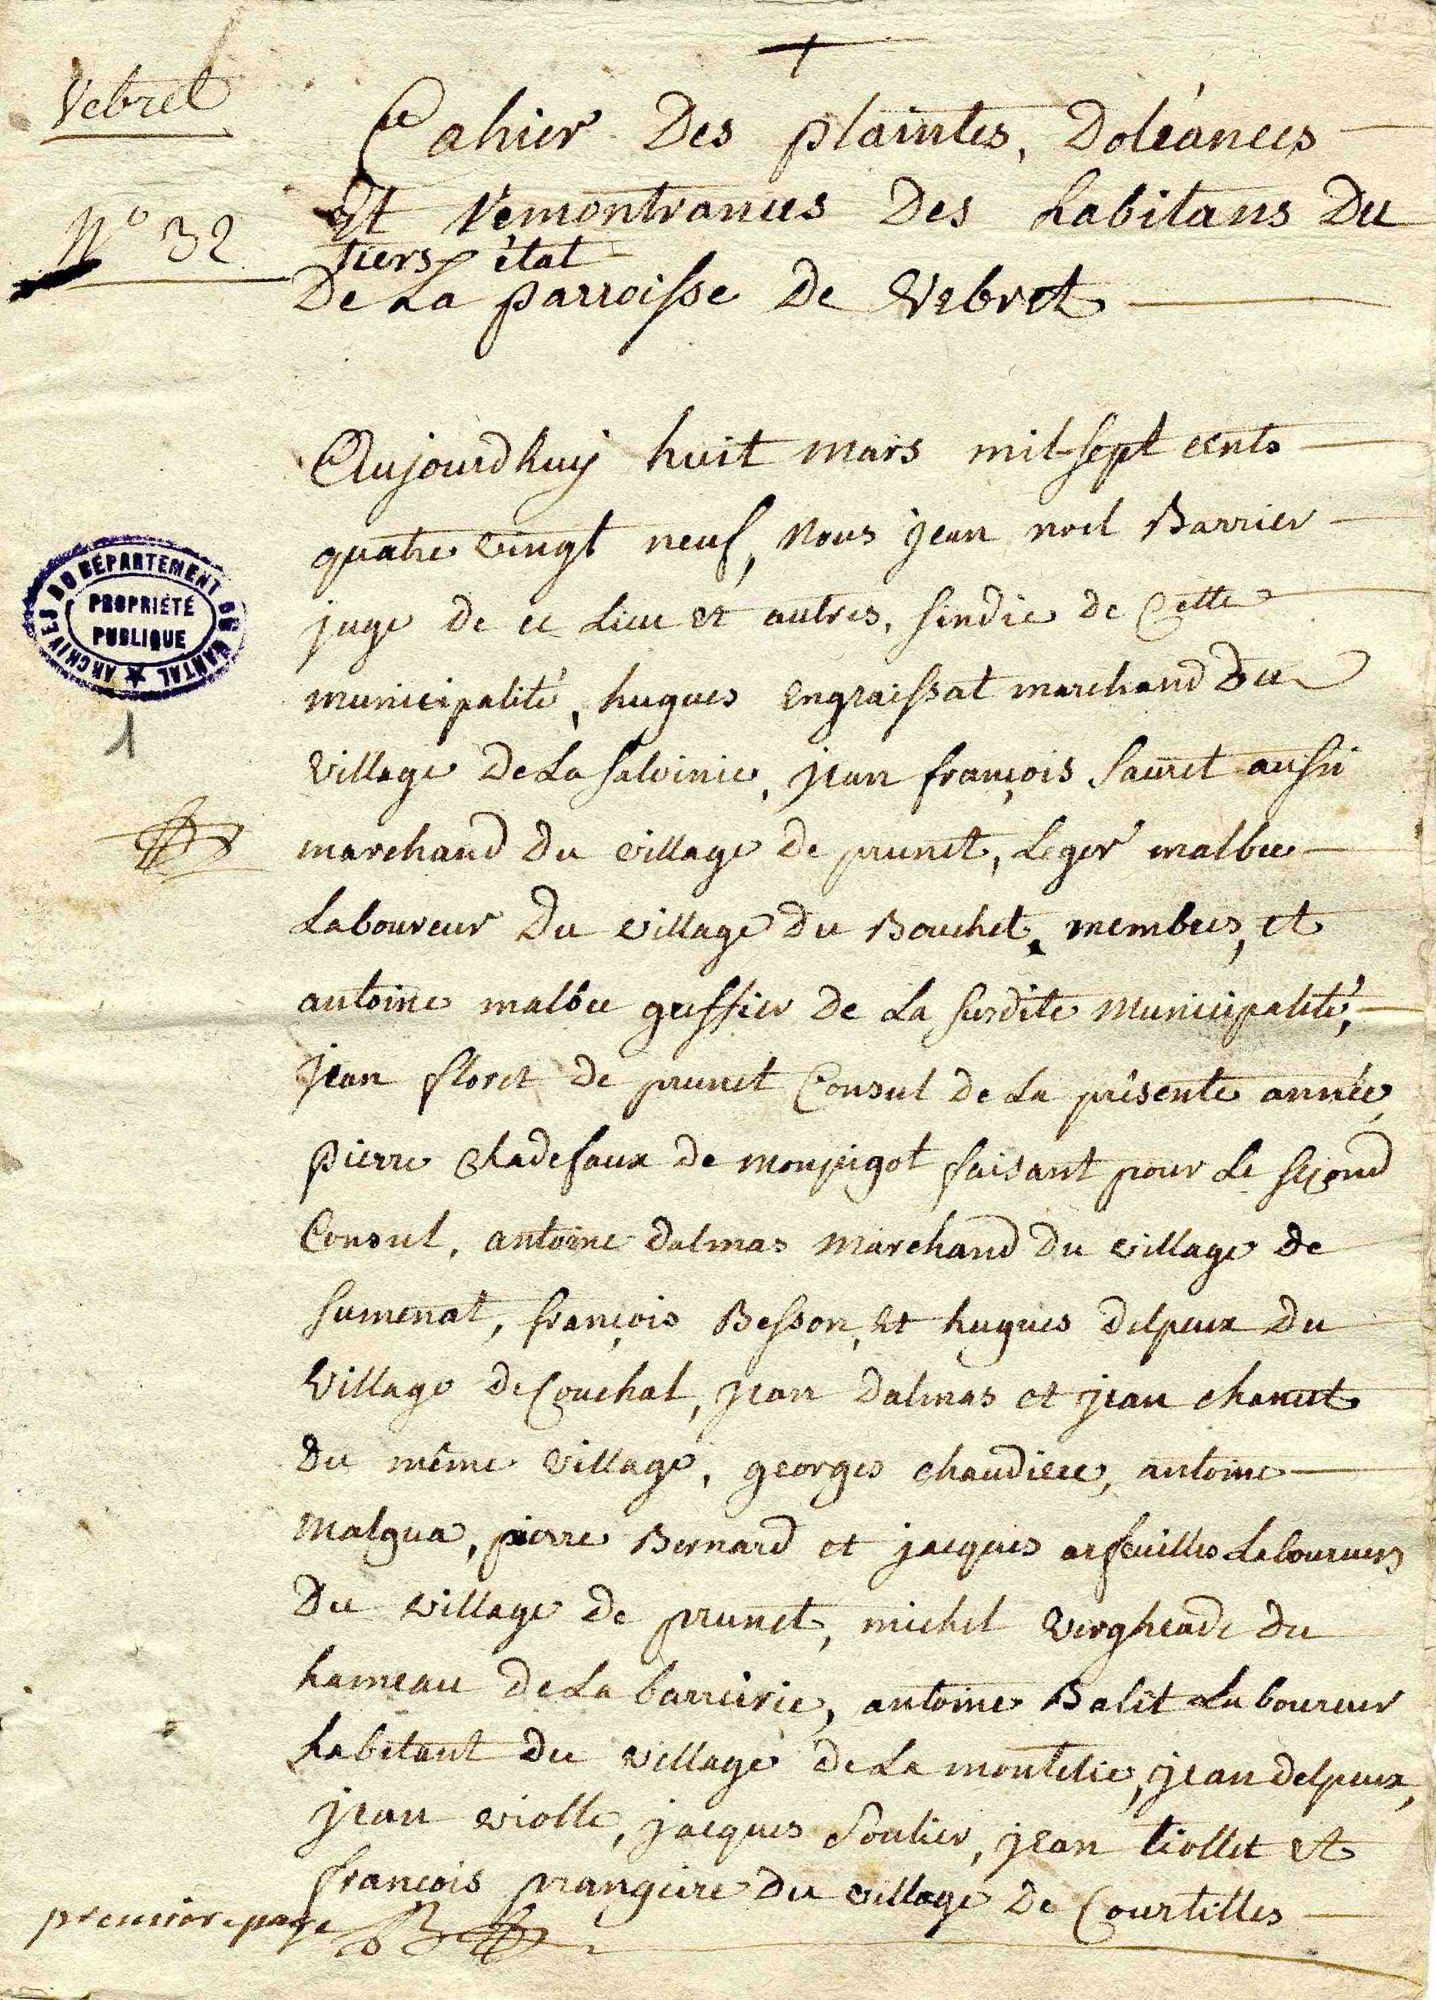 Vebret
N° 32
Cahier Des plaintes, Doléances
Et Remontrances Des habitans Du
tiers état
De La parroisse de Vebret
Aujourdhuy huit mars mil sept cents
quatre vingt neuf, Nous jean noel Barrier
juge de ce Lieu et autres, sindic de Cette
municipalité, hugues Engraissat marchand Du
village De La salvinie, jean françois Sauret aussi
marchand Du village de prunet, Leger malbec
Laboureur Du village du Bouchet, membres, et
antoine malbec greffier de La susdite Municipalité,
jean floret de prunet Consul de La présente année,
pierre Chadefaux de monpigot faisant pour Le segond
Consul, antoine dalmas marchand Du village de
sumenat, françois Besson, et hugues delpeux Du
village de Couchal, jean dalmas et jean chanut
Du même village, georges chaudiere, antoine
Malgua, pierre Bernard et jacques arfeuilles Laboureurs
Du village de prunet, michel vergheade du
hameau De La barreirie, antoine Balit Laboureur
habitant du village de La montelie, jean delpeux,
jean violle, jacques Soulier, jean tiollet et
françois prangere du village De Courtilles
premiere page
ARCHIVES DU DÉPARTEMENT DU CANTAL
PROPRIÉTÉ
PUBLIQUE
1